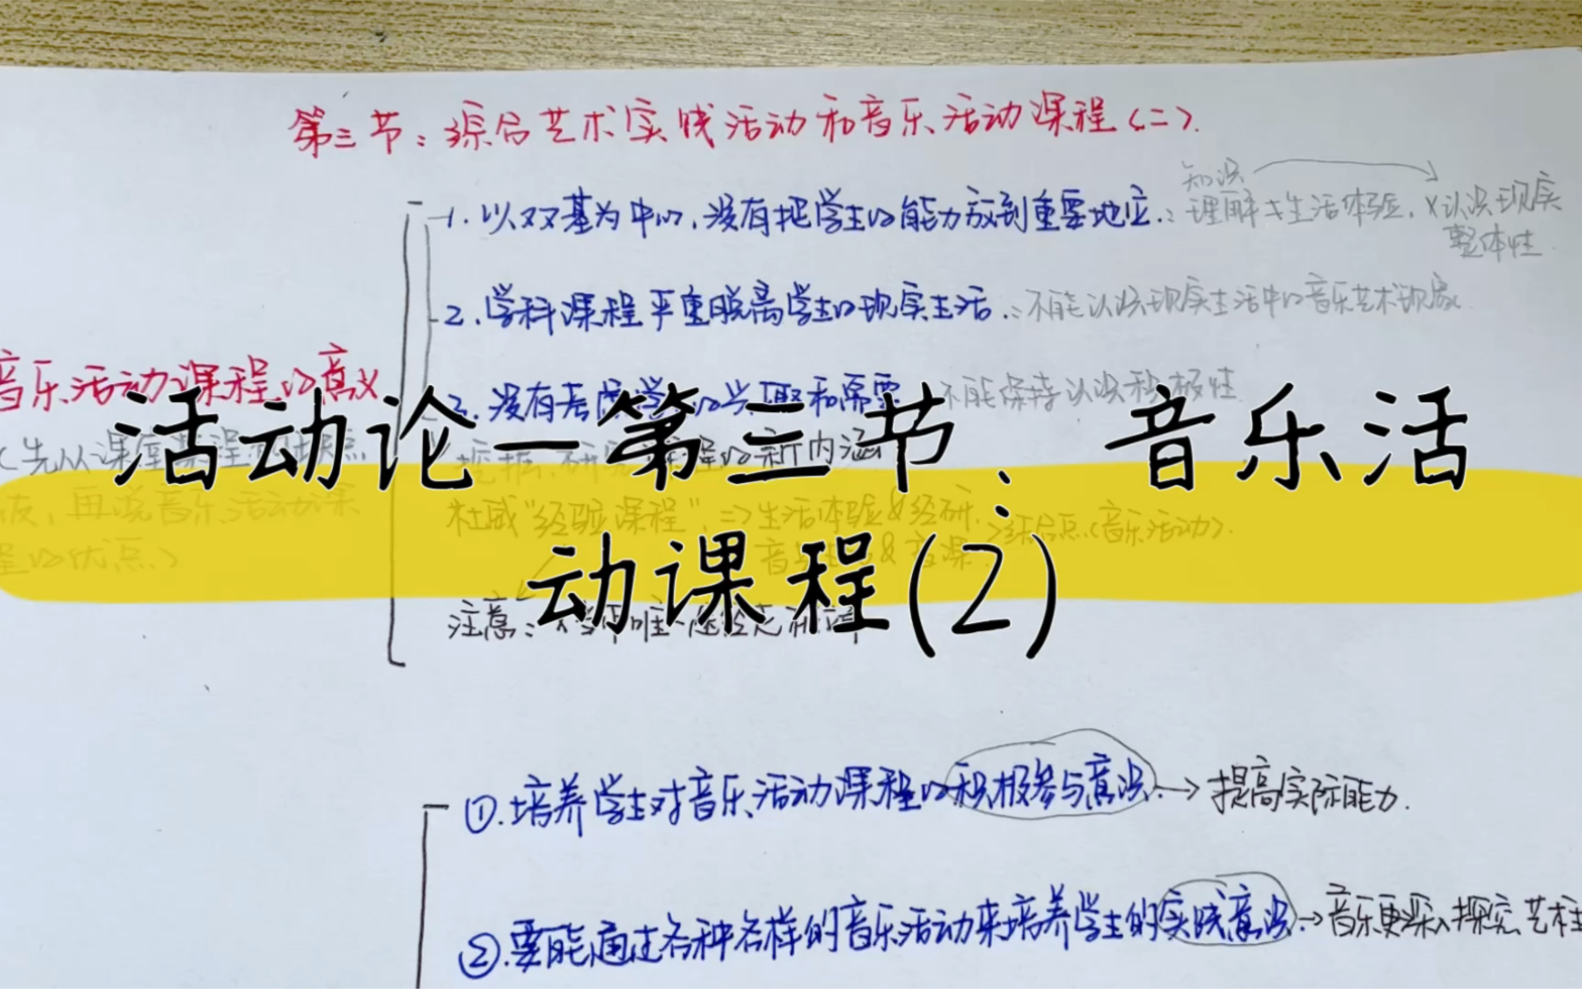 第三节：综合艺术实践活动和音乐活动课程（二）.
1. 以双基为中心，没有把学生的能力放到重要地位.∵理解≠生活体验，×认识现实
知识
整体性
2.学科课程严重脱离学生的现实生活.∵不能认识现实生活中的音乐艺术现象
音乐活动课程的意义
3. 没有 和需要 不能保持认识积极性
活动论—第三节：音乐活
动课程(2)
(先从课堂
的新内涵
再说音乐活动课
程的优点)
杜威"经验课程"⇒生活体验&经研
综合点(音乐活动).
注意：
①.培养学生对音乐活动课程的积极参与意识.→提高实际能力.
②.要能通过各种各样的音乐活动来培养学生的实践意识.→音乐更深入探究艺术